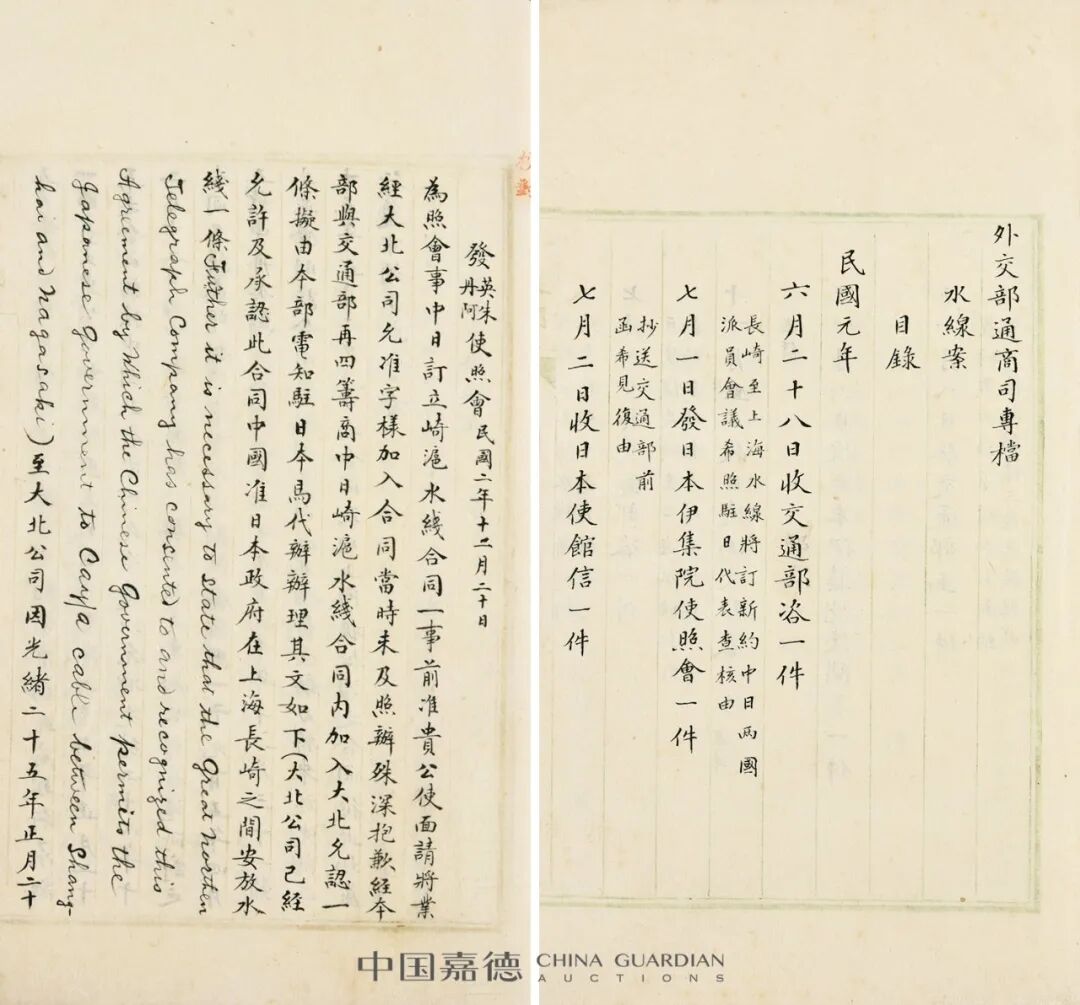 外交部通商司專檔
水線案
目錄
民國元年
六月二十八日收交通部咨一件
長崎至上海水線將訂新約中日兩國
派員會議希照駐日代表查核由
七月一日發日本伊集院使照會一件
抄送交通部前
函希見復由
七月二日收日本使館信一件
發英朱丹阿使照會民國二年十二月二十日
為照會事中日訂立崎滬水綫合同一事前准貴公使面請將業
經大北公司允准字樣加入合同當時未及照辦殊深抱歉經本
部與交通部再四籌商中日崎滬水綫合同內加入大北允認一
條擬由本部電知駐日本馬代辦辦理其文如下(大北公司已經
允許及承認此合同中國准日本政府在上海長崎之間安放水
綫一條Further it is necessary to state that the Great Northen
Telegraph Company has consented to and recognized this
Agriement by which the Chinese Government permits the
Japanese Government to Carry a cable between Shang-
hai and Nagasaki)至大北公司因光緒二十五年正月二十
中国嘉德 CHINA GUARDIAN
AUCTIONS